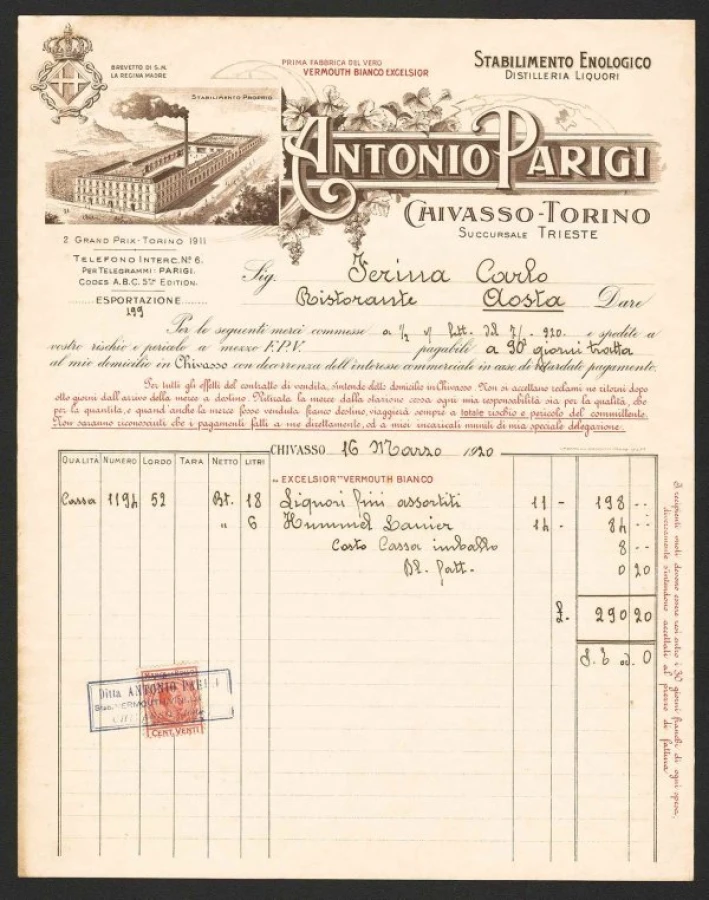 BREVETTO DI S.M.
LA REGINA MADRE
PRIMA FABBRICA DEL VERO
VERMOUTH BIANCO EXCELSIOR
STABILIMENTO ENOLOGICO
DISTILLERIA LIQUORI
STABILIMENTO PROPRIO
ANTONIO PARIGI
CHIVASSO-TORINO
SUCCURSALE TRIESTE
2 GRAND PRIX-TORINO 1911
TELEFONO INTERC. Nº 6.
PER TELEGRAMMI: PARIGI.
CODES A.B.C. 5TH EDITION.
ESPORTAZIONE
199
Sig. Ferina Carlo
Ristorante Aosta Dare
Per le seguenti merci commesse a ½ v/ fatt. del 7/- 920. e spedite a
vostro rischio e pericolo a mezzo F.P.V. pagabili a 90 giorni tratta
al mio domicilio in Chivasso con decorrenza dell'interesse commerciale in caso di ritardato pagamento.
Per tutti gli effetti del contratto di vendita, s'intende detto domicilio in Chivasso. Non si accettano reclami ne ritorni dopo
otto giorni dall'arrivo della merce a destino. Ritirata la merce dalla stazione cessa ogni mia responsabilità sia per la qualità, che
per la quantità, e quand'anche la merce fosse venduta franco destino, viaggerà sempre a totale rischio e pericolo del committente.
Non saranno riconosciuti che i pagamenti fatti a me direttamente, od a miei incaricati muniti di mia speciale delegazione.
CHIVASSO 16 Marzo 1920
QUALITÀ NUMERO LORDO TARA NETTO LITRI
„EXCELSIOR" VERMOUTH BIANCO
Cassa 1194 52 Bt. 18 Liquori fini assortiti 11 - 198 --
" 6 Hummel Lanier 14 - 84 --
Costo Cassa imballo 8 --
Bl. fatt. 0 20
£. 290 20
S. E. od. O
I recipienti vuoti devono essere resi entro i 30 giorni franchi di ogni spesa,
diversamente s'intendono accettati al prezzo di fattura
Ditta ANTONIO PARIGI
CENT. VENTI